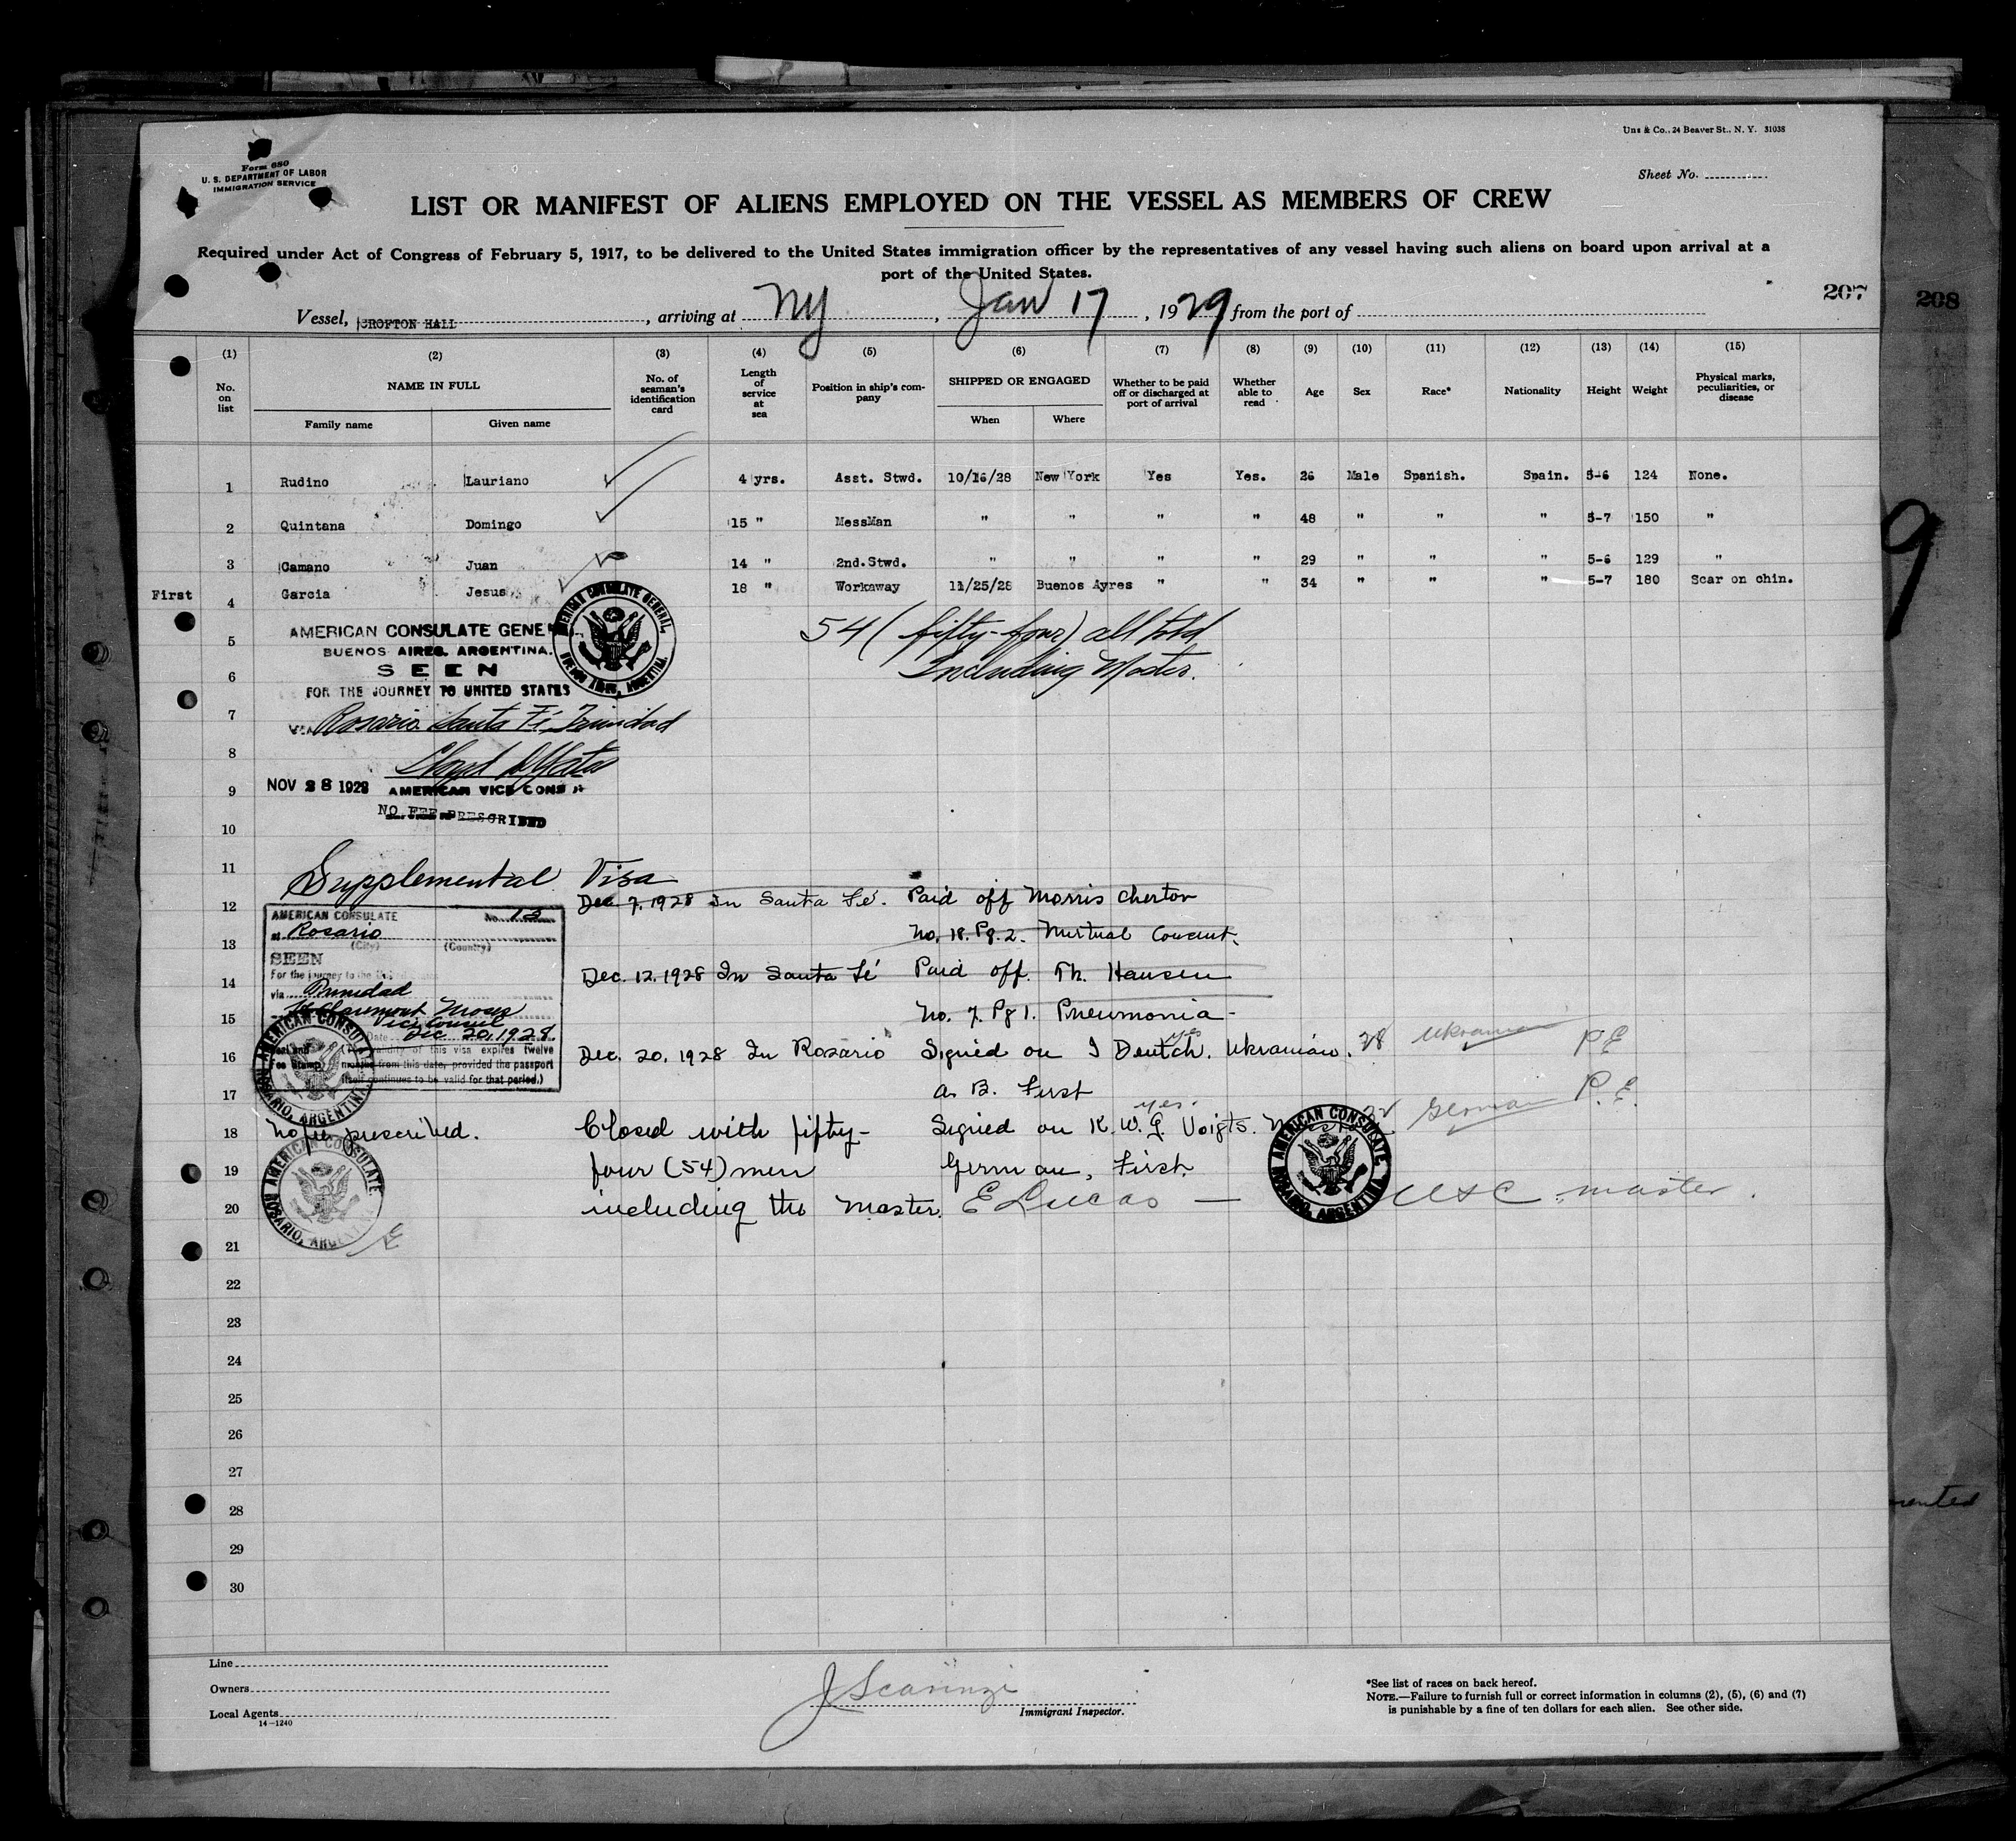 Uns & Co., 24 Beaver St., N. Y. 31038
Form 680
U. S. DEPARTMENT OF LABOR
IMMIGRATION SERVICE
Sheet No.
LIST OR MANIFEST OF ALIENS EMPLOYED ON THE VESSEL AS MEMBERS OF CREW
Required under Act of Congress of February 5, 1917, to be delivered to the United States immigration officer by the representatives of any vessel having such aliens on board upon arrival at a
port of the United States.
207 208
Vessel, CROFTON HALL, arriving at NY, Jan 17, 1929 from the port of
(1) (2) (3) (4) (5) (6) (7) (8) (9) (10) (11) (12) (13) (14) (15)
No. on list
NAME IN FULL
Family name Given name
No. of seaman's identification card
Length of service at sea
Position in ship's company
SHIPPED OR ENGAGED
When Where
Whether to be paid off or discharged at port of arrival
Whether able to read
Age Sex Race* Nationality Height Weight
Physical marks, peculiarities, or disease
1 Rudino Lauriano 4 yrs. Asst. Stwd. 10/16/28 New York Yes Yes. 26 Male Spanish. Spain. 5-6 124 None.
2 Quintana Domingo 15 " MessMan " " " " 48 " " " 5-7 150 "
3 Camano Juan 14 " 2nd. Stwd. " " " " 29 " " " 5-6 129 "
First 4 Garcia Jesus 18 " Workaway 11/25/28 Buenos Ayres " " 34 " " " 5-7 180 Scar on chin.
54 (fifty-four) all told
Including Master.
AMERICAN CONSULATE GENERAL, BUENOS AIRES, ARGENTINA
AMERICAN CONSULATE GENE
BUENOS AIRES, ARGENTINA.
SEEN
FOR THE JOURNEY TO UNITED STATES
VIA Rosario Santa Fé Trinidad
NOV 28 1928 AMERICAN VICE CONS
NO FEE PRESCRIBED
9
Supplemental Visa
AMERICAN CONSULATE No. 13
at Rosario
(City) (Country)
SEEN
For the journey to the
via Trinidad
Vice Consul
Date Dec 20, 1928.
(The validity of this visa expires twelve
months from this date, provided the passport
itself continues to be valid for that period.)
AMERICAN CONSULATE ROSARIO, ARGENTINA
No fee prescribed.
AMERICAN CONSULATE ROSARIO, ARGENTINA
Dec 7, 1928 In Santa Fé. Paid off Morris Cherton
No. 18. Pg. 2. Mutual Consent.
Dec. 12. 1928 In Santa Fé Paid off. Th. Hansen
No. 7. Pg 1. Pneumonia-
yes
Dec. 20, 1928 In Rosario Signed on I Deutch. Ukranian. 28 Ukranian P E
A. B. First
yes.
Closed with fifty- Signed on K. W. G Voigts. 32 German P. E.
four (54) men German, First.
including the Master. E Lucas — USC master.
AMERICAN CONSULATE ROSARIO, ARGENTINA
5
6
7
8
9
10
11
12
13
14
15
16
17
18
19
20
21
22
23
24
25
26
27
28
29
30
Line
Owners
Local Agents
14—1240
J Scarinzi
Immigrant Inspector.
*See list of races on back hereof.
NOTE.—Failure to furnish full or correct information in columns (2), (5), (6) and (7)
is punishable by a fine of ten dollars for each alien. See other side.